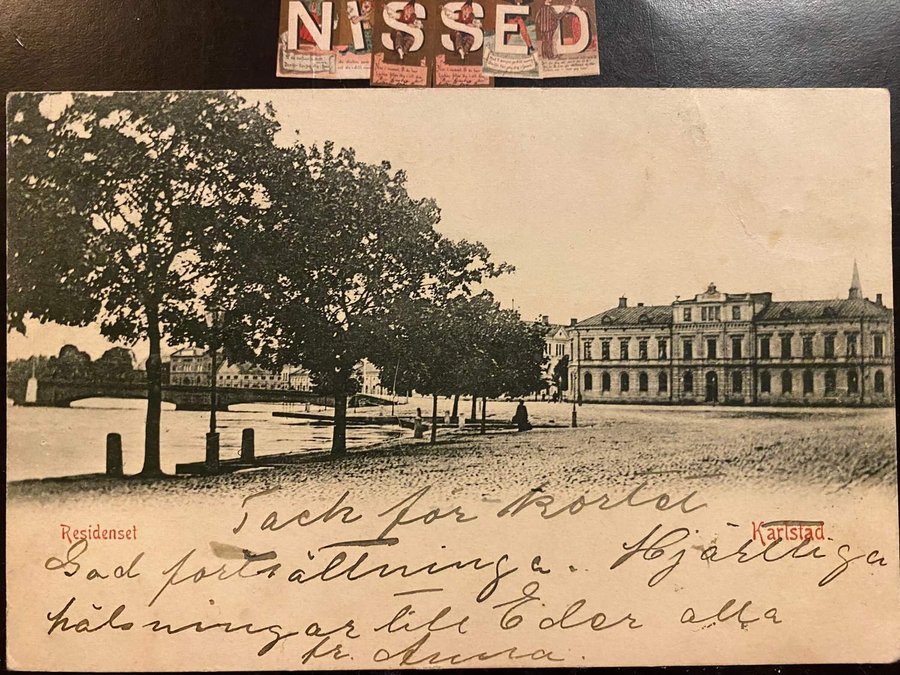 NISSED
Residenset
Karlstad.
Tack för kortet
God fortsättninga. Hjärtliga
hälsningar till Eder alla
fr. Anna.